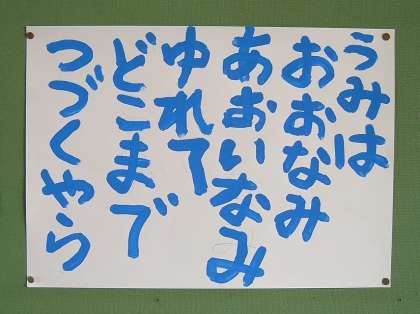 うみは
おおなみ
あおいなみ
ゆれて
どこまで
つづくやら